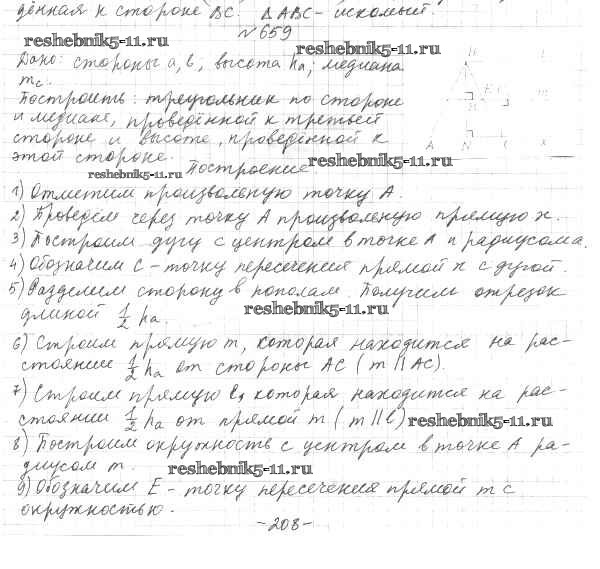 дённая к стороне BC. ΔABC - искомый.
№659
reshebnik5-11.ru
reshebnik5-11.ru
Дано: стороны a, b, высота ha; медиана
mc.
Построить: треугольник по стороне
и медиане, проведённой к третьей
стороне и высоте, проведённой к
этой стороне.
A N C x
Построение
reshebnik5-11.ru
reshebnik5-11.ru
1) Отметим произвольную точку A.
2) Проведём через точку A произвольную прямую x.
3) Построим дугу с центром в точке A и радиусом a.
4) Обозначим C - точку пересечения прямой x с дугой.
5) Разделим сторону b пополам. Получим отрезок
длиной 1/2 ha.
reshebnik5-11.ru
6) Строим прямую m, которая находится на рас-
стоянии 1/2 ha от стороны AC (m || AC).
7) Строим прямую l, которая находится на рас-
стоянии 1/2 ha от прямой m (m || l)
reshebnik5-11.ru
8) Построим окружность с центром в точке A ра-
диусом m.
reshebnik5-11.ru
9) Обозначим E - точку пересечения прямой m с
окружностью.
-208-